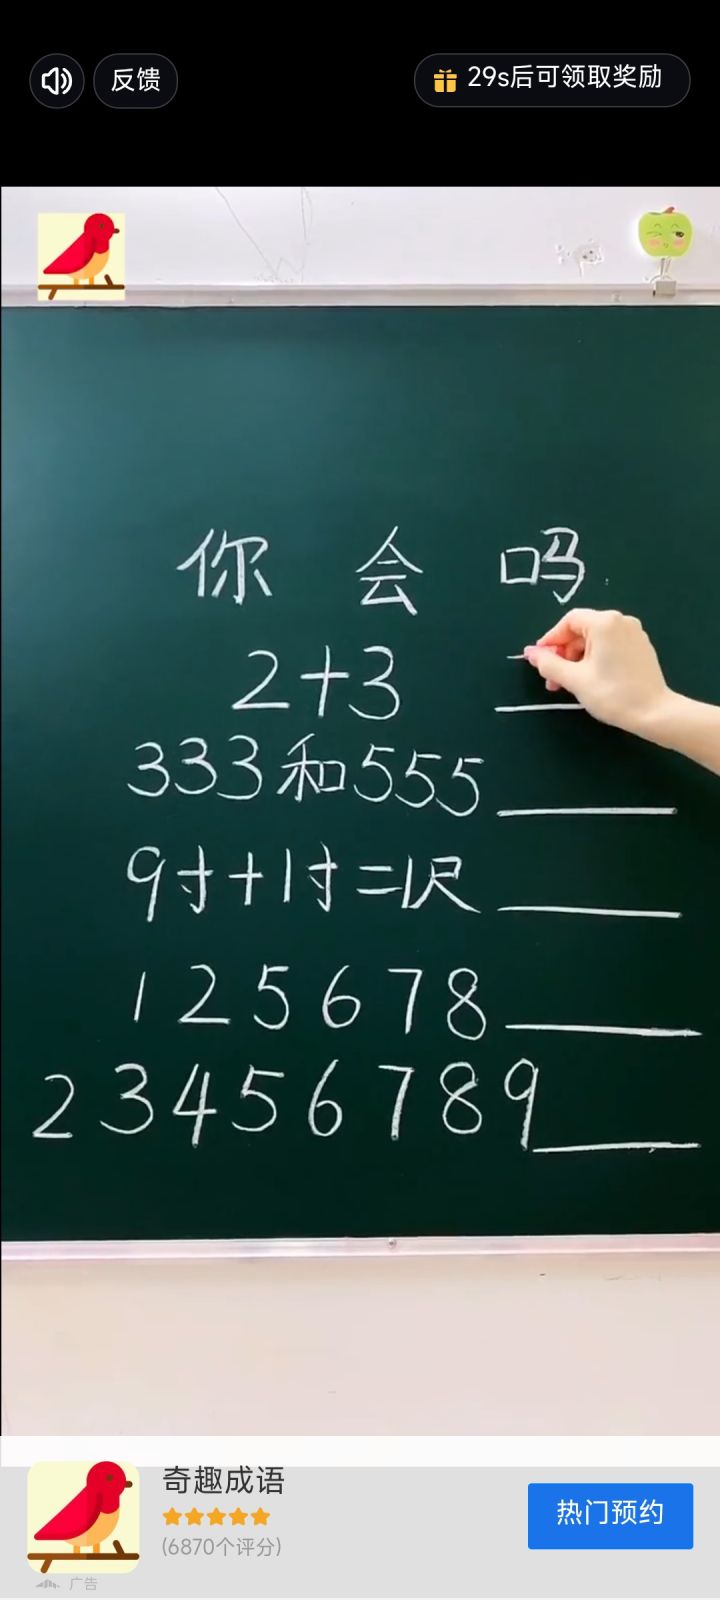 反馈 29s后可领取奖励
你会吗
2+3
333和555
9寸+1寸=1尺
125678
23456789
奇趣成语
(6870个评分)
热门预约
广告